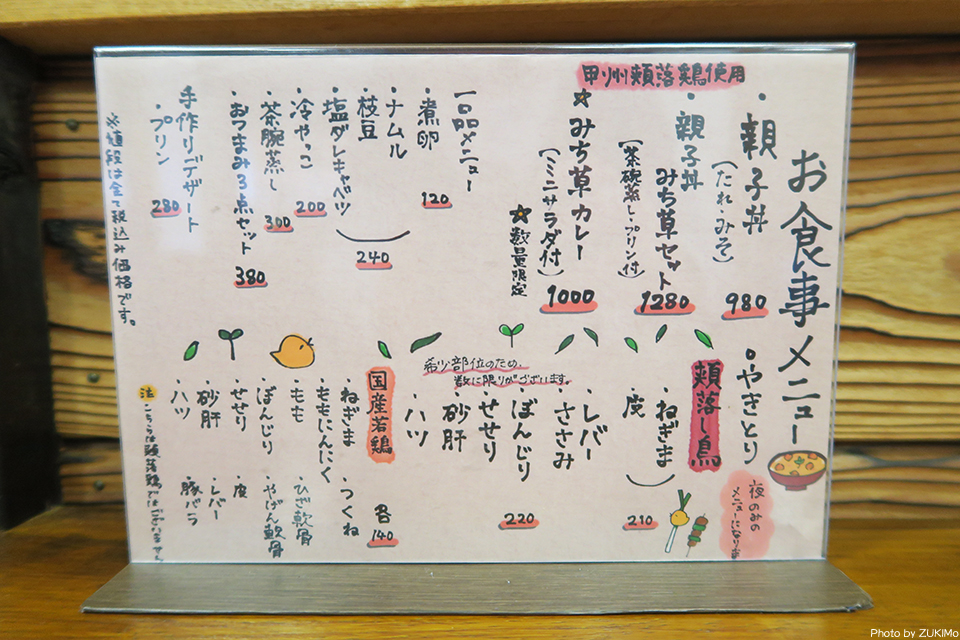 お食事メニュー
甲州頬落鶏使用
・親子丼
(たれ・みそ)
980
・親子丼
みち草セット
(茶碗蒸し・プリン付)
1280
みち草カレー
(ミニサラダ付)
1000
数量限定
一品メニュー
・煮卵
120
・ナムル
・枝豆
・塩ダレキャベツ
240
・冷やっこ
200
・茶腕蒸し
300
・おつまみ3点セット
380
手作りデザート
・プリン
280
※値段は全て税込み価格です。
・やきとり
夜のみの
メニューになります
頬落し鳥
・ねぎま
・皮
210
希少部位のため、
数に限りがございます。
・レバー
・ささみ
・ぼんじり
・せせり
・砂肝
・ハツ
220
国産若鶏
・ねぎま
・ももにんにく
・もも
・ぼんじり
・せせり
・砂肝
・ハツ
・つくね
・ひざ軟骨
・やげん軟骨
・皮
・レバー
・豚バラ
各
140
注
こちらは頬落鶏ではございません
Photo by ZUKIMo